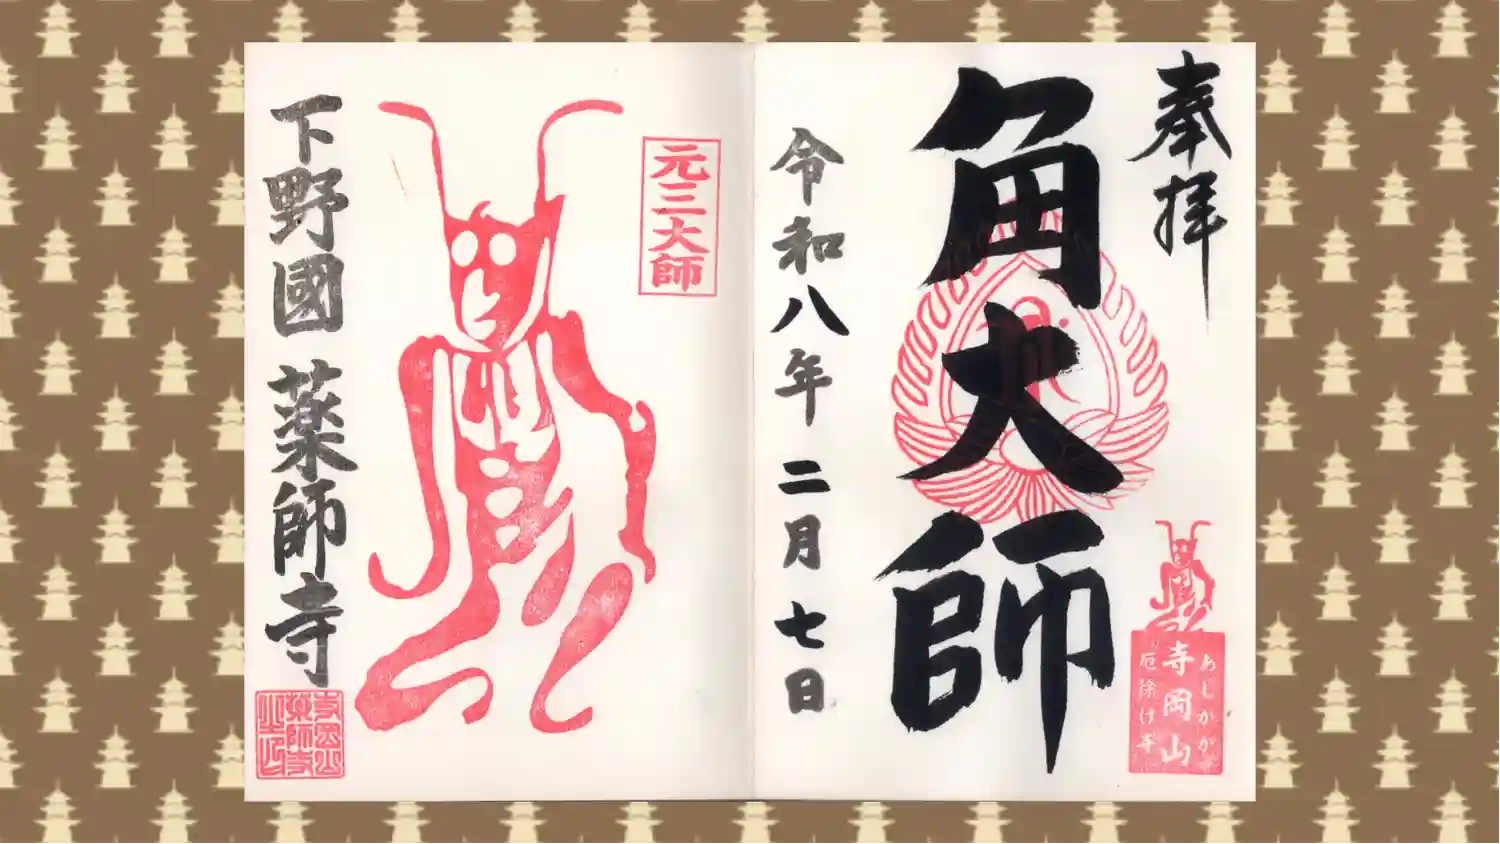 奉拝
角大師
令和八年二月七日
あしかが
寺岡山
厄除け寺
元三大師
下野國 薬師寺